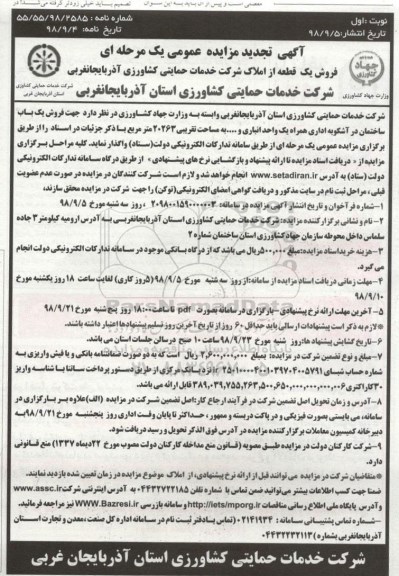 نوبت: اول
تاریخ انتشار: ۹۸/۹/۵
شماره نامه: ۵۵/۵۵/۹۸/۲۵۸۵
تاریخ نامه: ۹۸/۹/۴
آگهی تجدید مزایده عمومی یک مرحله ای
فروش یک قطعه از املاک شرکت خدمات حمایتی کشاورزی آذربایجانغربی
شرکت خدمات حمایتی کشاورزی استان آذربایجانغربی
وزارت جهاد کشاورزی
شرکت خدمات حمایتی کشاورزی
استان آذربایجان غربی
شرکت خدمات حمایتی کشاورزی استان آذربایجانغربی وابسته به وزارت جهاد کشاورزی در نظر دارد جهت فروش یک باب
ساختمان در آشکوبه اداری همراه یک واحد انباری و .... به مساحت تقریبی ۲۰۲۶۳ متر مربع با ذکر جزئیات در اسناد را از طریق
برگزاری مزایده عمومی یک مرحله ای از طریق سامانه تدارکات الکترونیکی دولت (ستاد) واگذار نماید. کلیه مراحل برگزاری
مزایده از « دریافت اسناد مزایده تا ارائه پیشنهاد و بازگشایی نرخ های پیشنهادی» از طریق درگاه سامانه تدارکات الکترونیکی
دولت (ستاد) به آدرس www.setadiran.ir انجام خواهد شد و لازم است شرکت کنندگان در مزایده در صورت عدم عضویت
قبلی، مراحل ثبت نام در سایت مذکور و دریافت گواهی امضای الکترونیکی (توکن) را جهت شرکت در مزایده محقق سازند،
۱- شماره فرآخوان و تاریخ انتشار آگهی مزایده در سامانه: ۲۰۹۸۰۰۱۵۹۰۰۰۰۰۳ روز سه شنبه مورخ ۹۸/۹/۵
۲- نام و نشانی برگزار کننده مزایده: شرکت خدمات حمایتی کشاورزی استان آذربایجانغربی به آدرس ارومیه کیلومتر ۳ جاده
سلماس داخل محوطه سازمان جهاد کشاورزی استان ساختمان شماره ۲
۳- هزینه خرید اسناد مزایده: مبلغ ۵۰۰,۰۰۰ ریال می باشد که از درگاه بانکی موجود در سامانه تدارکات الکترونیکی دولت انجام
می گیرد.
۴- مهلت زمانی دریافت اسناد مزایده از سامانه: از روز سه شنبه مورخ ۹۸/۹/۵ (۵ روز کاری) لغایت ساعت ۱۸ روز یکشنبه مورخ
۹۸/۹/۱۰
۵- آخرین مهلت ارائه نرخ پیشنهادی - بارگزاری در سامانه بصورت pdf تا ساعت ۱۸:۰۰ روز پنج شنبه مورخ ۹۸/۹/۲۱
*لازم به ذکر است پیشنهادات ارسالی باید حداقل ۶۰ روز از تاریخ آخرین روز تسلیم پیشنهادها اعتبار داشته باشند.
۶- تاریخ گشایش پیشنهاد ها: روز شنبه مورخ ۹۸/۹/۲۳ ساعت ۱۰ صبح در سالن جلسات استان می باشد.
۷- مبلغ و نوع تضمین شرکت در مزایده: بمبلغ ۲,۶۰۰,۰۰۰,۰۰۰ ریال است که به دو صورت ضمانتنامه بانکی و یا فیش واریزی به
شماره حساب شبای
نزد بانک مرکزی از طریق دستور پرداخت ساتنا با شناسه واریز
۳۰ کاراکتری
قابل ارائه می باشد.
۸- آدرس و زمان تحویل اصل تضمین شرکت در فرآیند ارجاع کار: اصل تضمین شرکت در مزایده (الف) علاوه بر بارگزاری در
سامانه، می بایستی بصورت فیزیکی و در پاکت دربسته و ممهور، حداکثر تا پایان وقت اداری روز پنجشنبه مورخ ۹۸/۹/۲۱ به
دبیرخانه کمیسیون معاملات برگزار کننده مزایده در آدرس فوق الذکر تحویل و رسید دریافت شود.
۹- شرکت کارکنان دولت در مزایده طبق مصوبه (قانون منع مداخله کارکنان دولت مصوب مورخ ۲۲ دیماه ۱۳۳۷) منع قانونی
دارد.
*متقاضیان شرکت در مزایده می توانند قبل از ارائه نرخ پیشنهادی، از املاک موضوع مزایده در زمان تعیین شده بازدید نمایند.
ضمنا جهت کسب اطلاعات بیشتر می توانید ضمن تماس با شماره تلفن ۰۴۴۳۲۷۲۲۱۸۵ به آدرس اینترنتی شرکت www.assc.ir
و آدرس پایگاه ملی اطلاع رسانی مناقصات http://iets/mporg.ir و سامانه بازرسی WWW.Bazresi.ir نیز مراجعه فرمائید.
-شماره تماس پشتیبانی سامانه: ۰۲۱۴۱۹۳۴ (تماس با دفتر ثبت نام در سامانه اداره کل صنعت، معدن و تجارت استان
آذربایجانغربی بشماره) ۰۴۴۳۲۲۳۲۱۱۳
شرکت خدمات حمایتی کشاورزی استان آذربایجان غربی